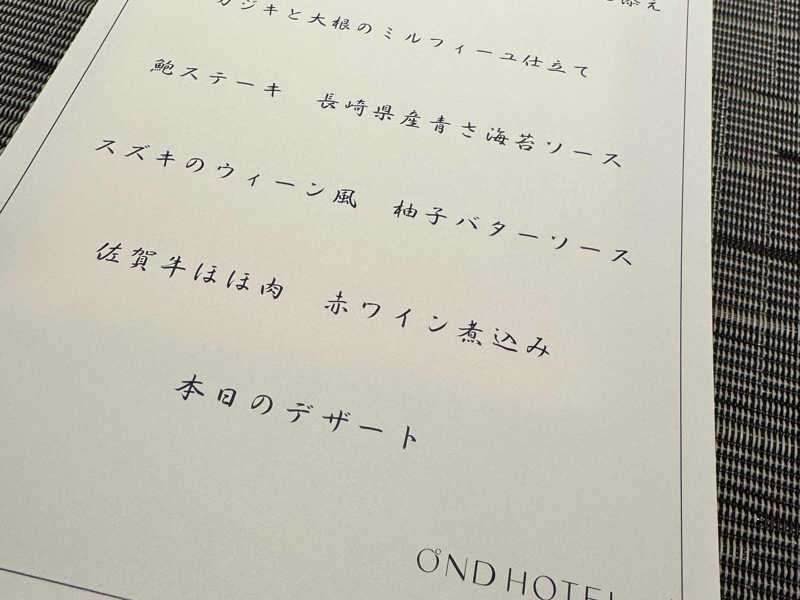 添え
カジキと大根のミルフィーユ仕立て
鮑ステーキ 長崎県産青さ海苔ソース
スズキのウィーン風 柚子バターソース
佐賀牛ほほ肉 赤ワイン煮込み
本日のデザート
OND HOTEL